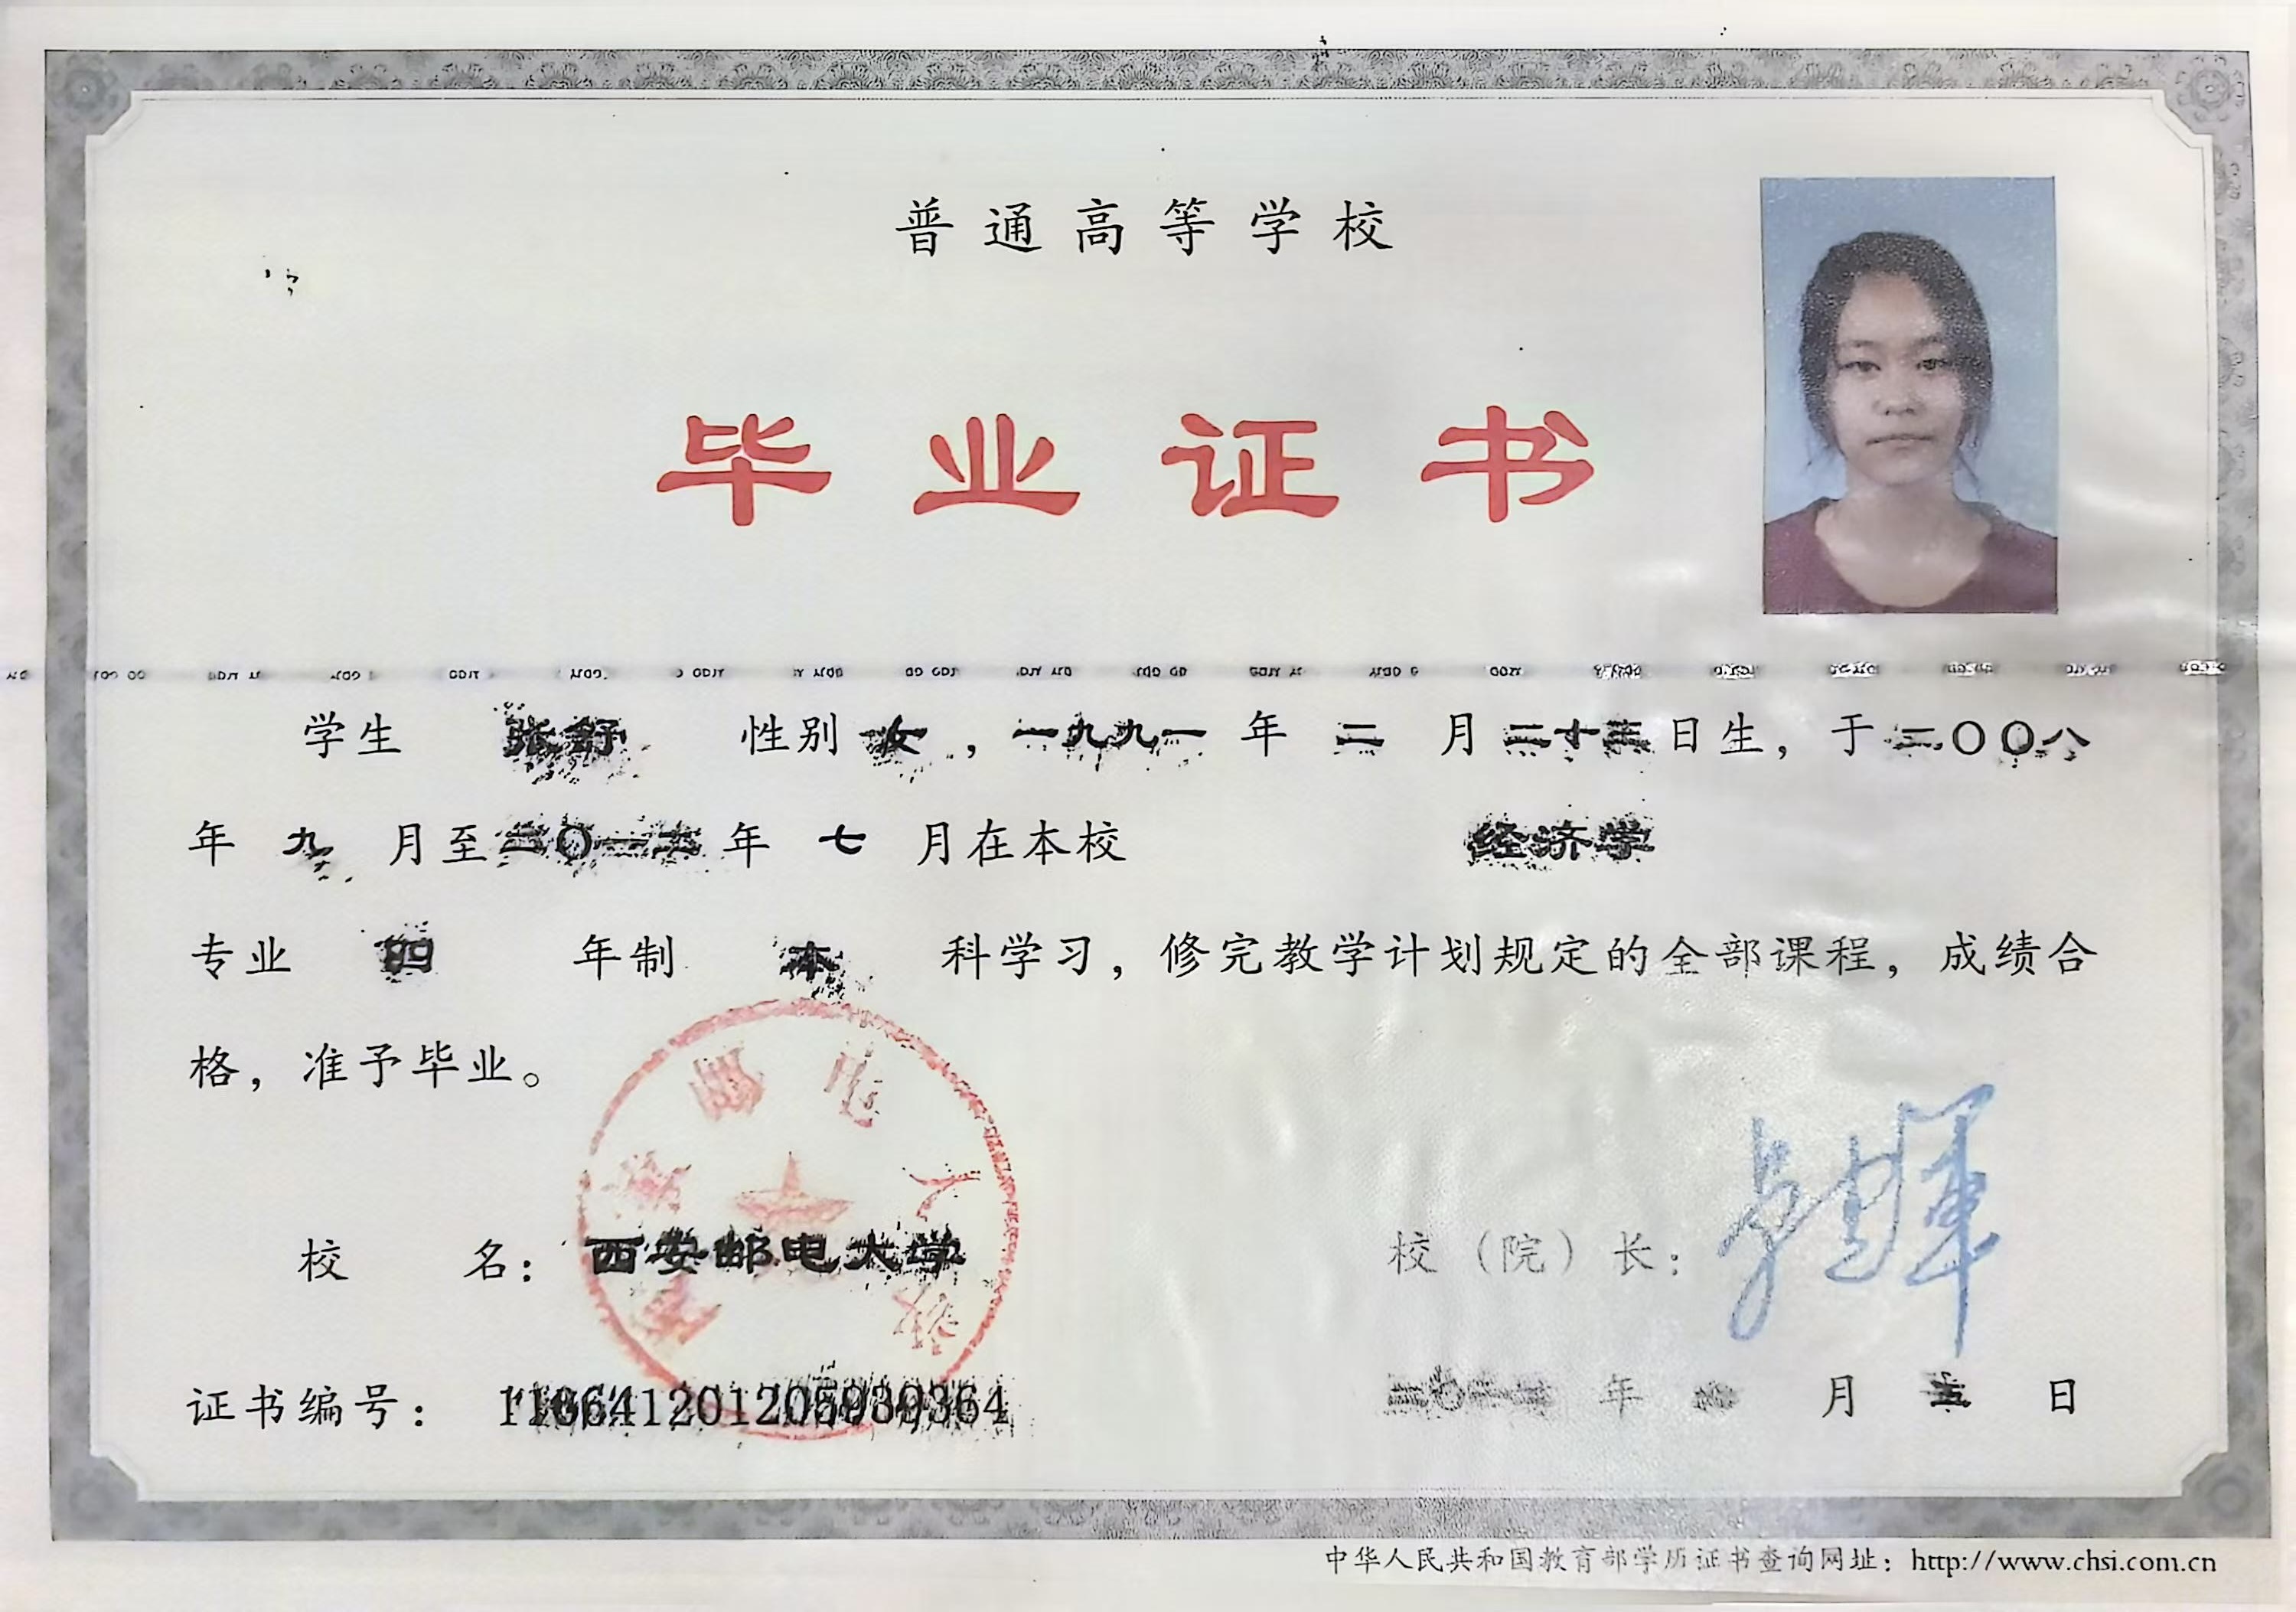 普通高等学校
毕业证书
学生 张舒 性别 女，一九九一 年 二 月 二十三 日生，于 二〇〇八
年 九 月至 二〇一二 年 七 月在本校 经济学
专业 四 年制 本 科学习，修完教学计划规定的全部课程，成绩合
格，准予毕业。
校 名：西安邮电大学 校（院）长：
证书编号： 年 月 日
中华人民共和国教育部学历证书查询网址：http://www.chsi.com.cn